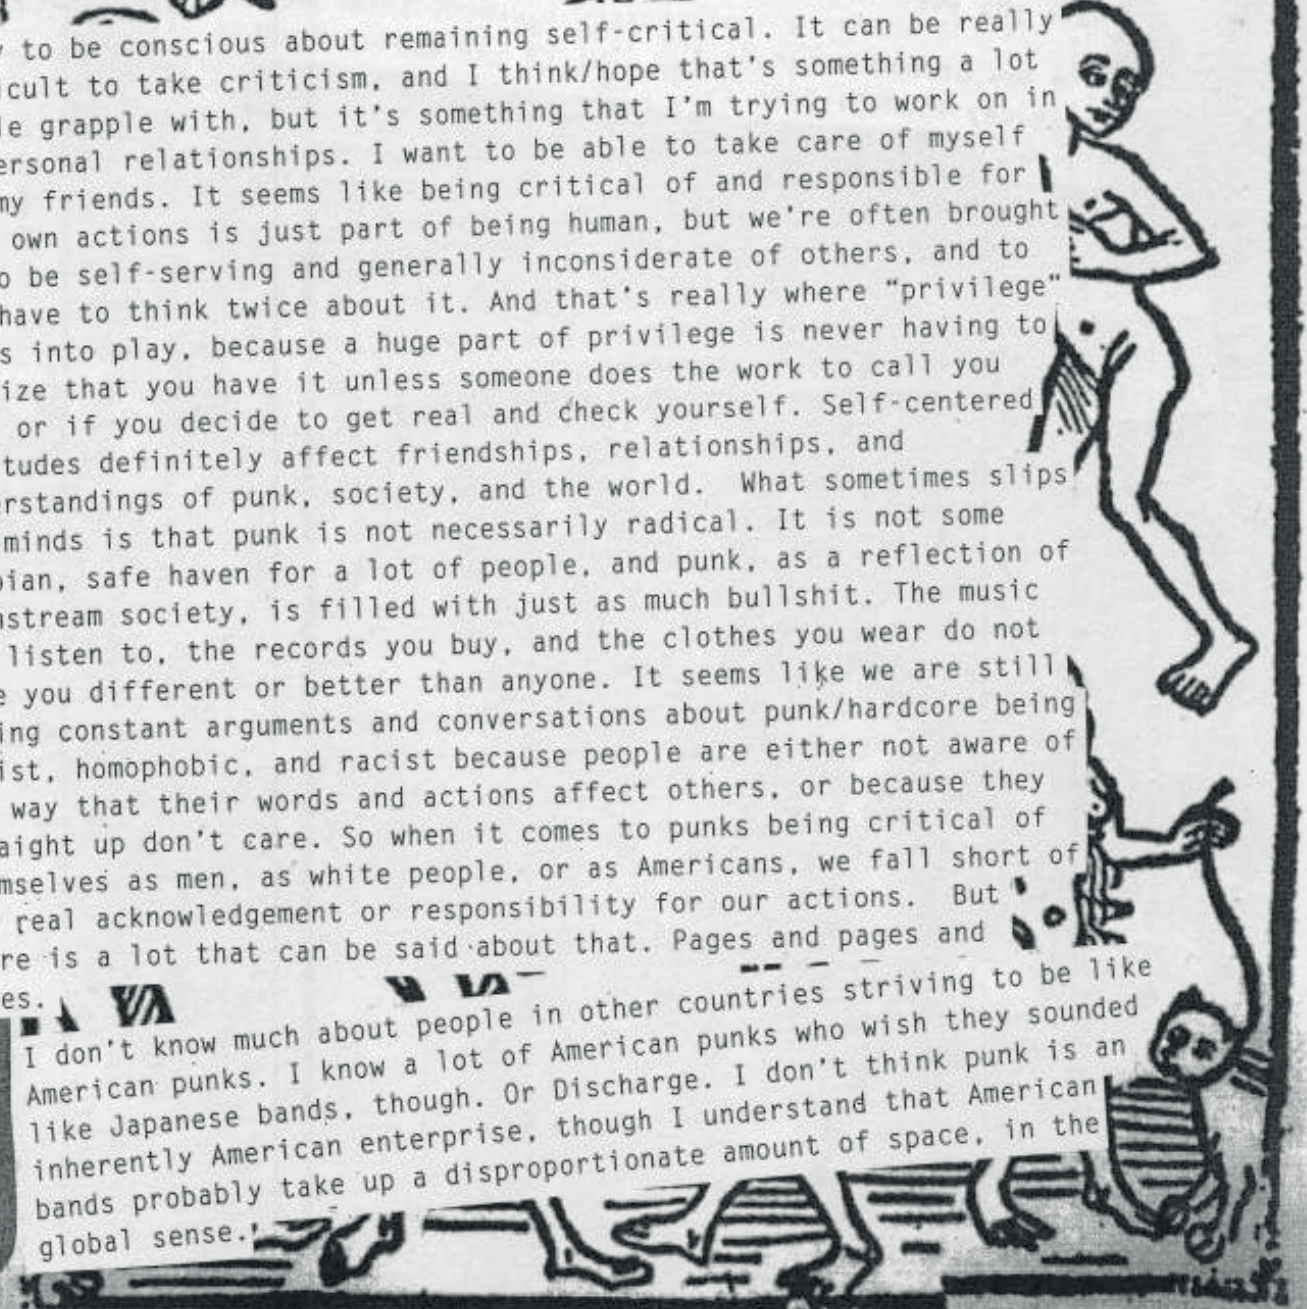 to be conscious about remaining self-critical. It can be really
icult to take criticism, and I think/hope that's something a lot
le grapple with, but it's something that I'm trying to work on in
ersonal relationships. I want to be able to take care of myself
my friends. It seems like being critical of and responsible for
own actions is just part of being human, but we're often brought
o be self-serving and generally inconsiderate of others, and to
have to think twice about it. And that's really where "privilege"
s into play, because a huge part of privilege is never having to
ize that you have it unless someone does the work to call you
or if you decide to get real and check yourself. Self-centered
tudes definitely affect friendships, relationships, and
erstandings of punk, society, and the world. What sometimes slips
minds is that punk is not necessarily radical. It is not some
pian, safe haven for a lot of people, and punk, as a reflection of
nstream society, is filled with just as much bullshit. The music
listen to, the records you buy, and the clothes you wear do not
e you different or better than anyone. It seems like we are still
ing constant arguments and conversations about punk/hardcore being
ist, homophobic, and racist because people are either not aware of
way that their words and actions affect others, or because they
aight up don't care. So when it comes to punks being critical of
mselves as men, as white people, or as Americans, we fall short of
real acknowledgement or responsibility for our actions. But
re is a lot that can be said about that. Pages and pages and
es.
I don't know much about people in other countries striving to be like
American punks. I know a lot of American punks who wish they sounded
like Japanese bands, though. Or Discharge. I don't think punk is an
inherently American enterprise, though I understand that American
bands probably take up a disproportionate amount of space, in the
global sense.